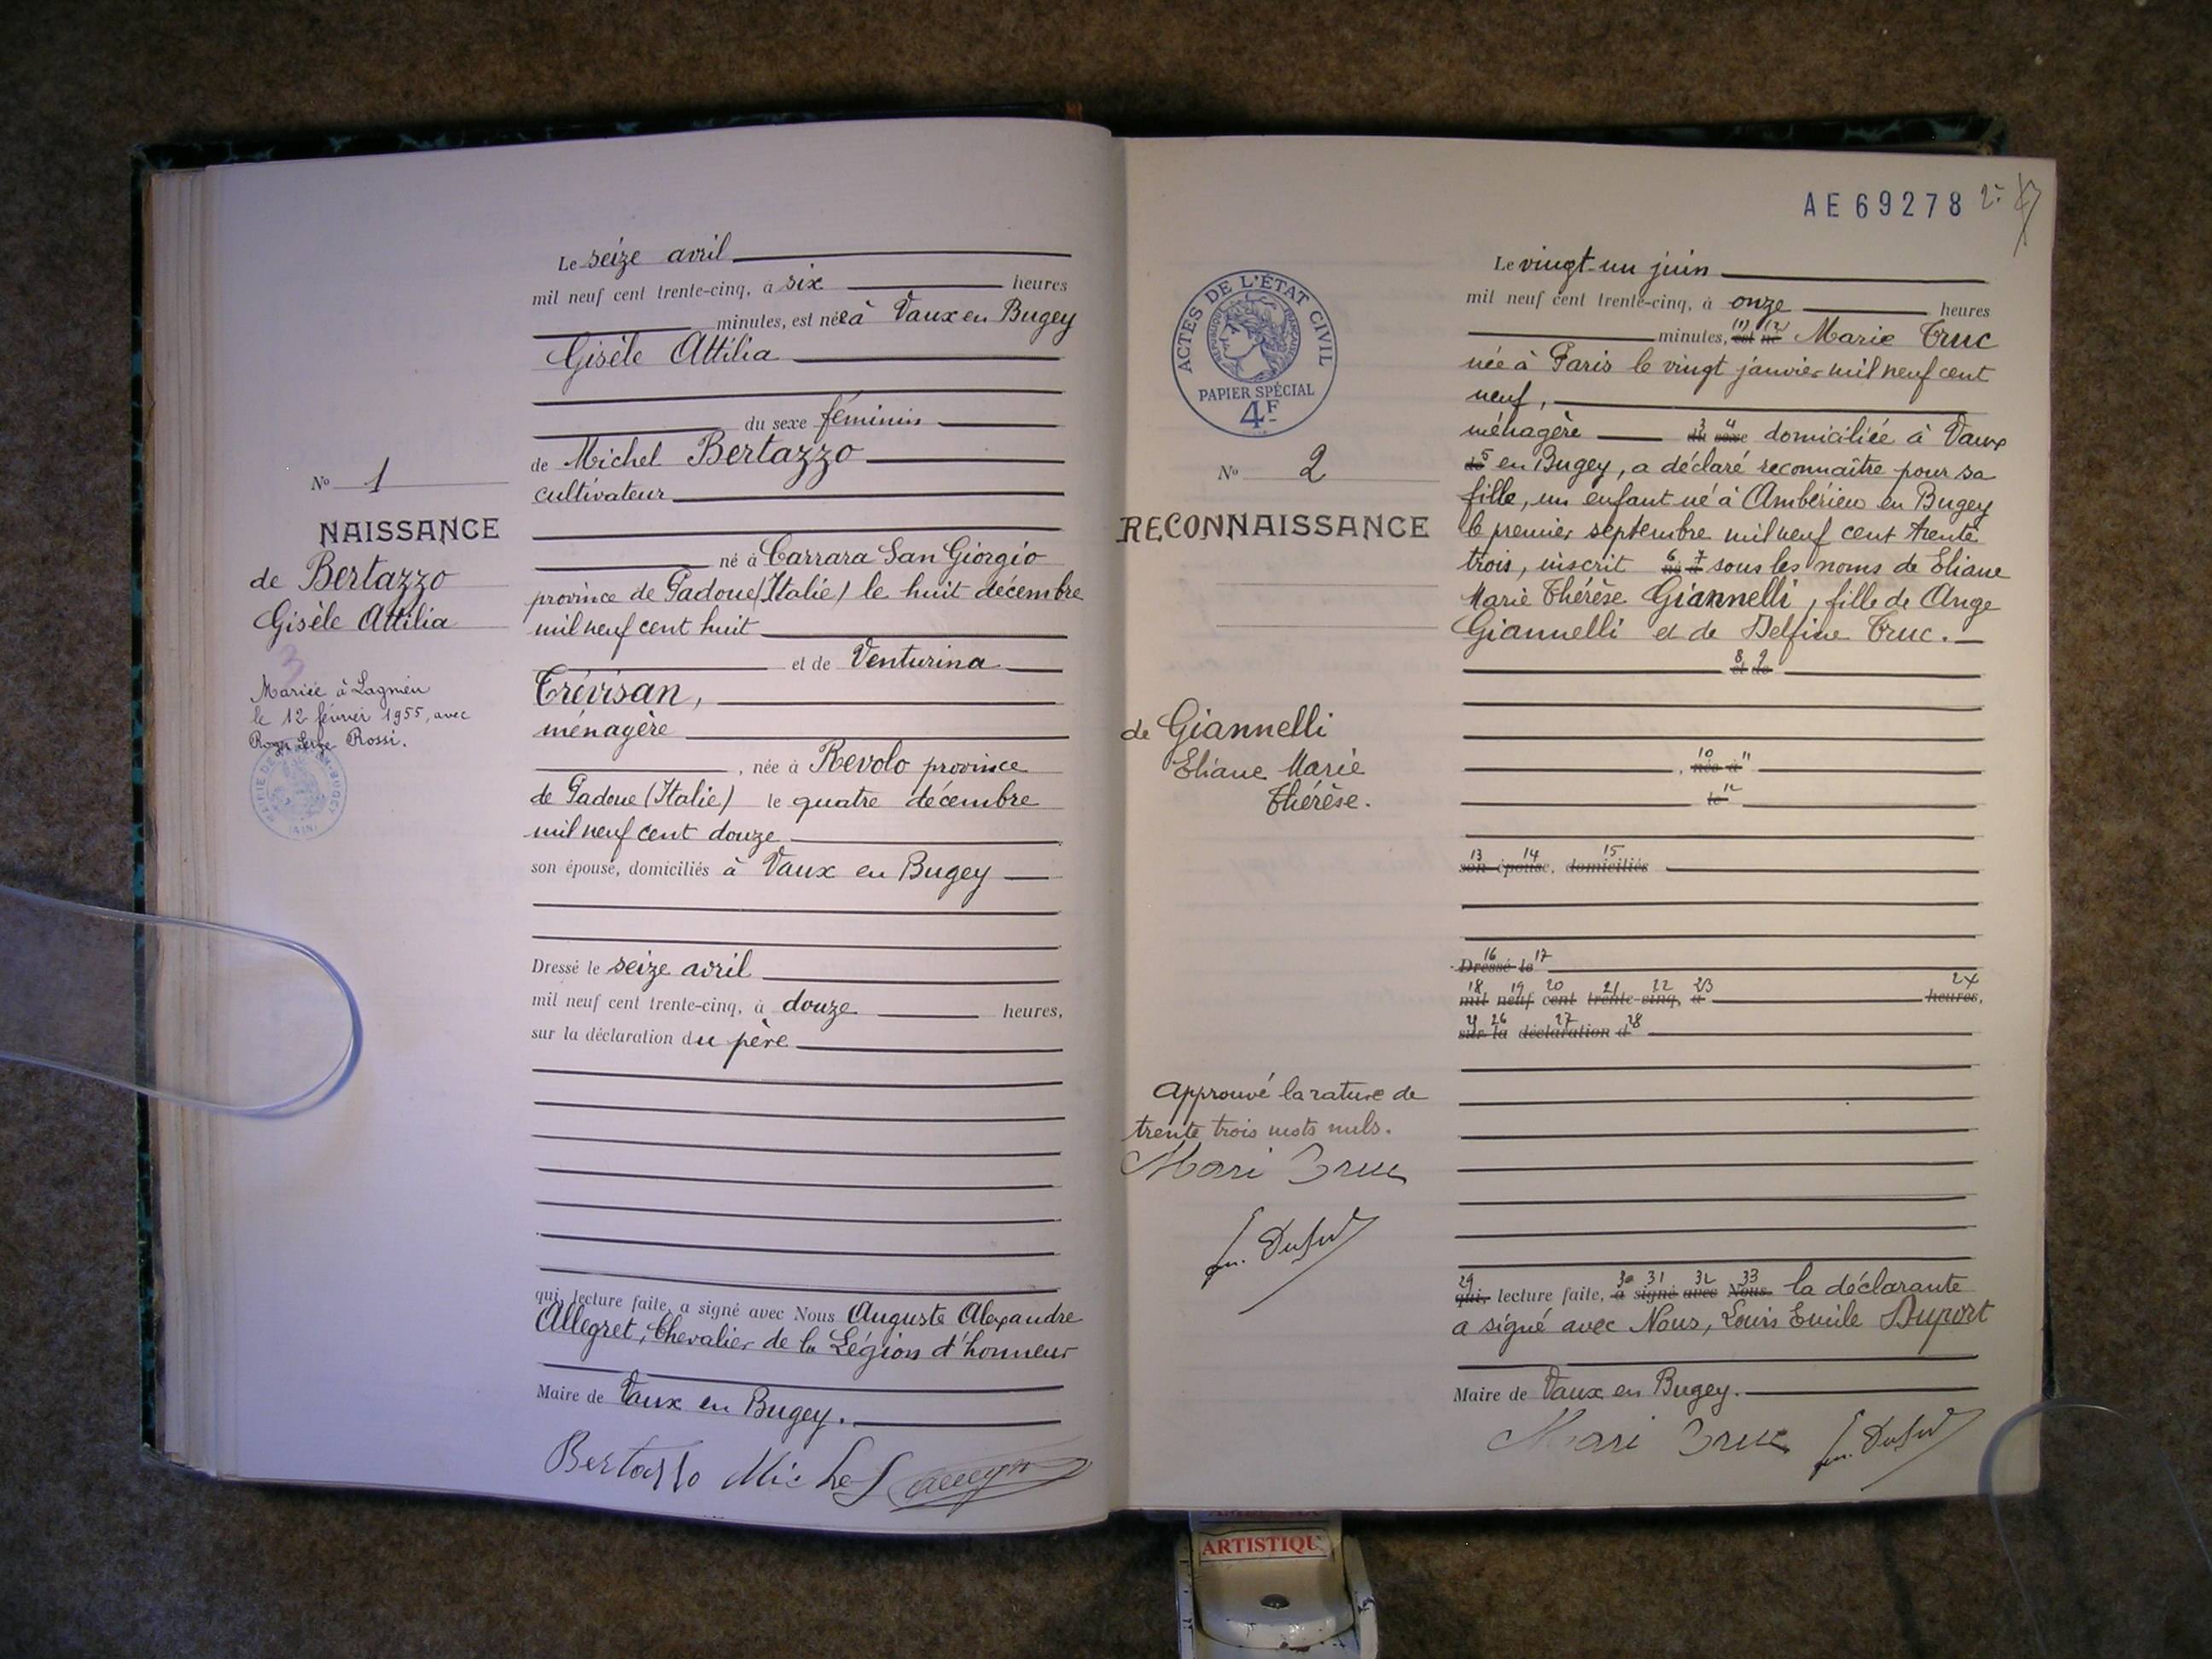 Le seize avril
mil neuf cent trente-cinq, à six heures
minutes, est née à Vaux en Bugey
Gisèle Attilia
du sexe féminin
de Michel Bertazzo
cultivateur
né à Carrara San Giorgio
province de Padoue (Italie) le huit décembre
mil neuf cent huit
et de Venturina
Trévisan,
ménagère
, née à Revolo province
de Padoue (Italie) le quatre décembre
mil neuf cent douze
son épouse, domiciliés à Vaux en Bugey
Dressé le seize avril
mil neuf cent trente-cinq, à douze heures,
sur la déclaration du père
qui, lecture faite, a signé avec Nous Auguste Alexandre
Allegret, Chevalier de la Légion d'honneur
Maire de Vaux en Bugey.
Bertazzo Michel
No 1
NAISSANCE
de Bertazzo
Gisèle Attilia
3
Mariée à Lagnieu
le 12 février 1955, avec
Roger Serge Rossi.
AE 69278
ACTES DE L'ÉTAT CIVIL
RÉPUBLIQUE FRANÇAISE
PAPIER SPÉCIAL
4F
No 2
RECONNAISSANCE
de Giannelli
Eliane Marie
Thérèse.
Approuvé la rature de
trente trois mots nuls.
Mari Truc
Le vingt-un juin
mil neuf cent trente-cinq, à onze heures
minutes, (1) (2) est né Marie Truc
née à Paris le vingt janvier mil neuf cent
neuf,
ménagère 3 4 du sexe domiciliée à Vaux
de 5 en Bugey, a déclaré reconnaître pour sa
fille, un enfant né à Ambérieu en Bugey
le premier septembre mil neuf cent trente
trois, inscrit 6 7 né à sous les noms de Eliane
Marie Thérèse Giannelli, fille de Ange
Giannelli et de Delfine Truc.
8 9
et de
10
, née à 11
le 12
13 14 15
son épouse, domiciliés
16 17
Dressé le
18 19 20 21 22 23 24
mil neuf cent trente-cinq, à heures,
26 27 28
sur la déclaration d
29 30 31 32 33
qui, lecture faite, a signé avec Nous la déclarante
a signé avec Nous, Louis Emile Duport
Maire de Vaux en Bugey.
Mari Truc
ARTISTIQU